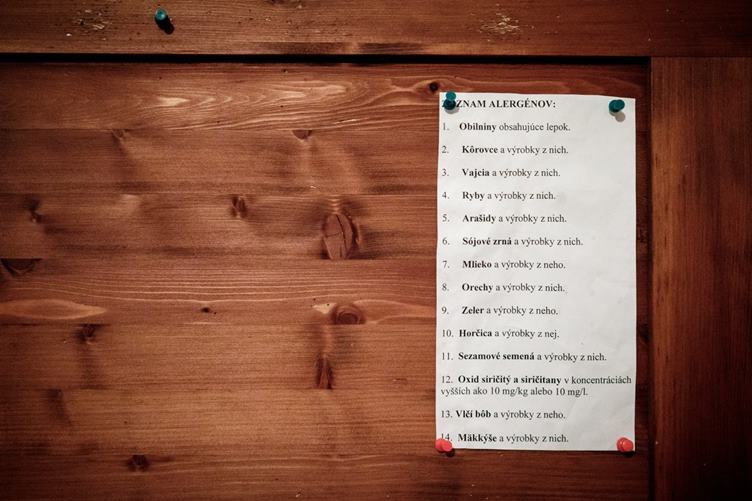 ZOZNAM ALERGÉNOV:
1. Obilniny obsahujúce lepok.
2. Kôrovce a výrobky z nich.
3. Vajcia a výrobky z nich.
4. Ryby a výrobky z nich.
5. Arašidy a výrobky z nich.
6. Sójové zrná a výrobky z nich.
7. Mlieko a výrobky z neho.
8. Orechy a výrobky z nich.
9. Zeler a výrobky z neho.
10. Horčica a výrobky z nej.
11. Sezamové semená a výrobky z nich.
12. Oxid siričitý a siričitany v koncentráciách
vyšších ako 10 mg/kg alebo 10 mg/l.
13. Vlčí bôb a výrobky z neho.
14. Mäkkýše a výrobky z nich.